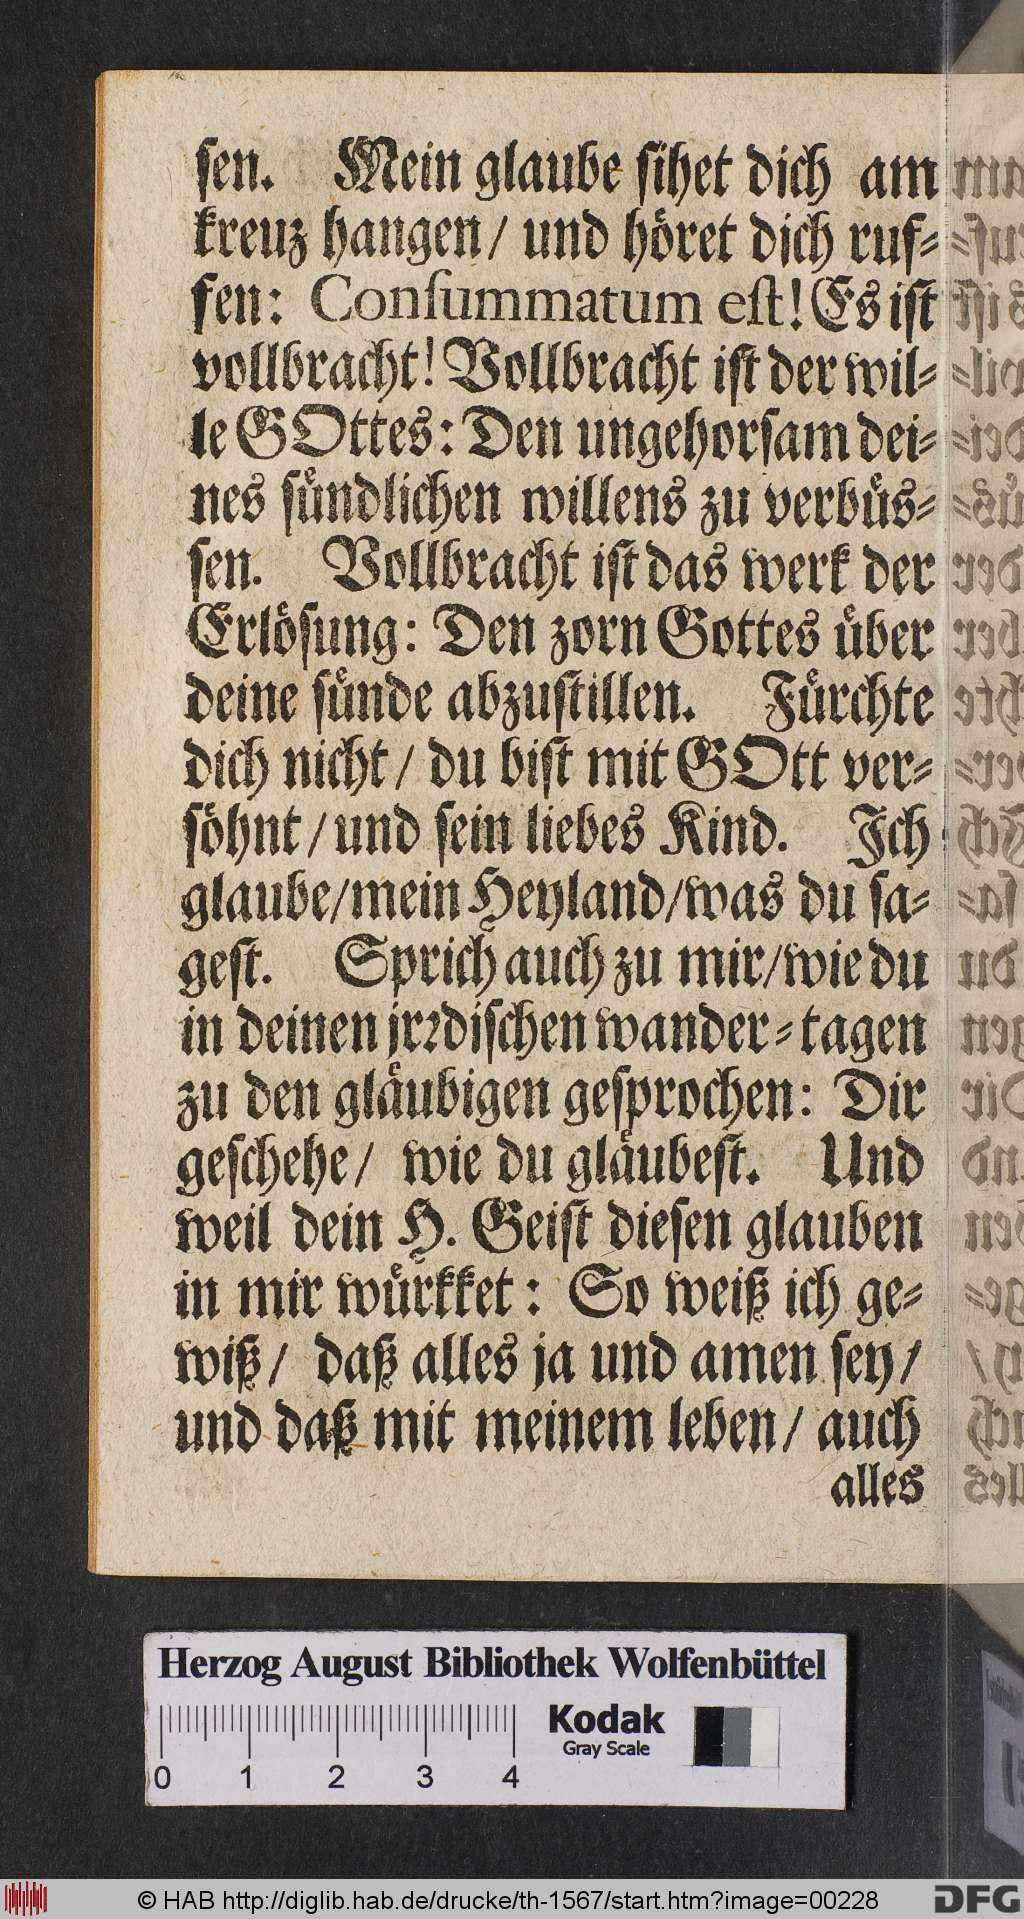 sen. Mein glaube sihet dich am
kreuz hangen/ und höret dich ruf-
fen: Consummatum est! Es ist
vollbracht! Vollbracht ist der wil-
le GOttes: Den ungehorsam dei-
nes sündlichen willens zu verbüs-
sen. Vollbracht ist das werk der
Erlösung: Den zorn Gottes über
deine sünde abzustillen. Fürchte
dich nicht/ du bist mit GOtt ver-
söhnt/ und sein liebes Kind. Ich
glaube/mein Heyland/was du sa-
gest. Sprich auch zu mir/wie du
in deinen jrꝛdischen wander-tagen
zu den gläubigen gesprochen: Dir
geschehe/ wie du gläubest. Und
weil dein H. Geist diesen glauben
in mir würkket: So weiß ich ge-
wiß/ daß alles ja und amen sey/
und daß mit meinem leben/ auch
alles
Herzog August Bibliothek Wolfenbüttel
Kodak
Gray Scale
0 1 2 3 4
© HAB http://diglib.hab.de/drucke/th-1567/start.htm?image=00228
DFG